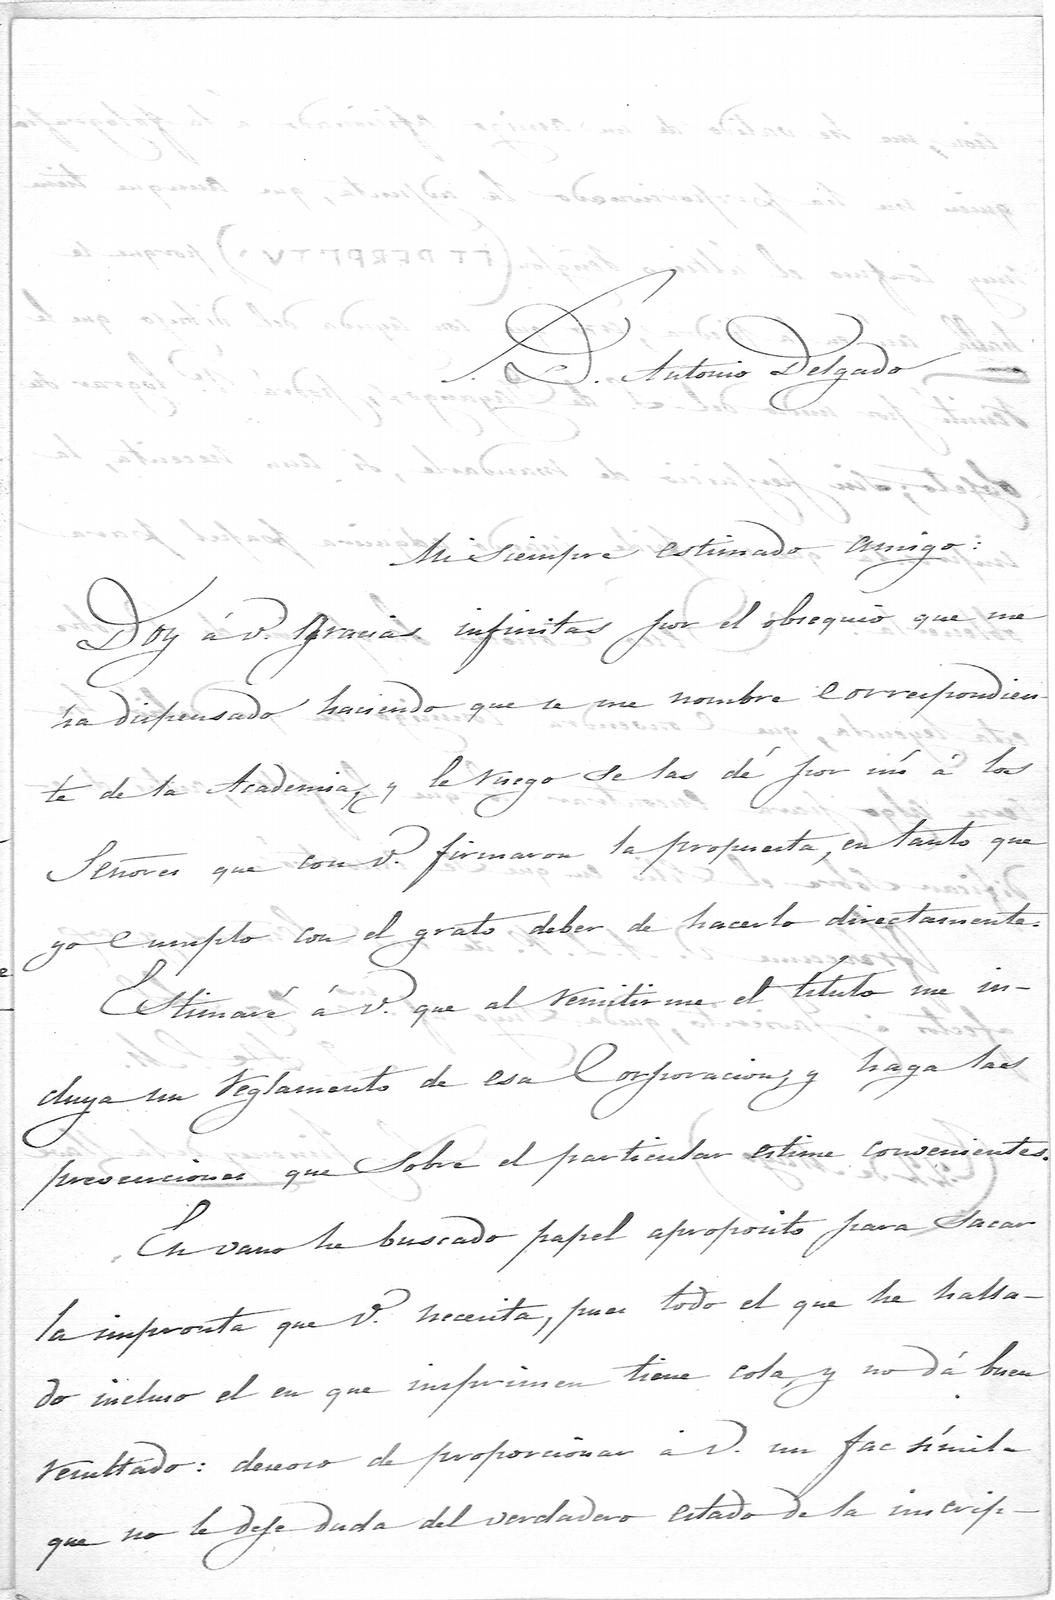 S. D. Antonio Delgado
Mi siempre estimado amigo:
Doy á V. gracias infinitas por el obsequio que me
ha dispensado haciendo que se me nombre Correspondien-
te de la Academia, y le ruego se las dé por mí á los
Señores que con V. firmaron la propuesta, en tanto que
yo cumplo con el grato deber de hacerlo directamente.
Estimaré á V. que al remitirme el título me in-
cluya un reglamento de esa Corporacion, y haga las
prevenciones que sobre el particular estime convenientes.
En vano he buscado papel aproposito para sacar
la impronta que V. necesita, pues todo el que he halla-
do incluso el en que imprimen tiene cola, y no dá buen
resultado: deseoso de proporcionar á V. un fac símile
que no le deje duda del verdadero estado de la inscrip-